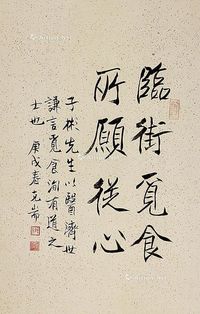 臨街覓食
所願從心
子彬先生以醫濟世
謙言覓食洵有道之
士也 庚戌春 克耑